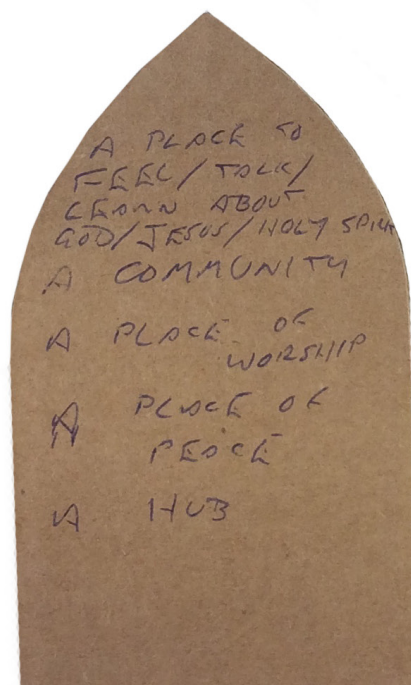 A PLACE TO
FEEL/TALK/
LEARN ABOUT
GOD/JESUS/HOLY SPIRIT
A COMMUNITY
A PLACE OF
WORSHIP
A PLACE OF
PEACE
A HUB